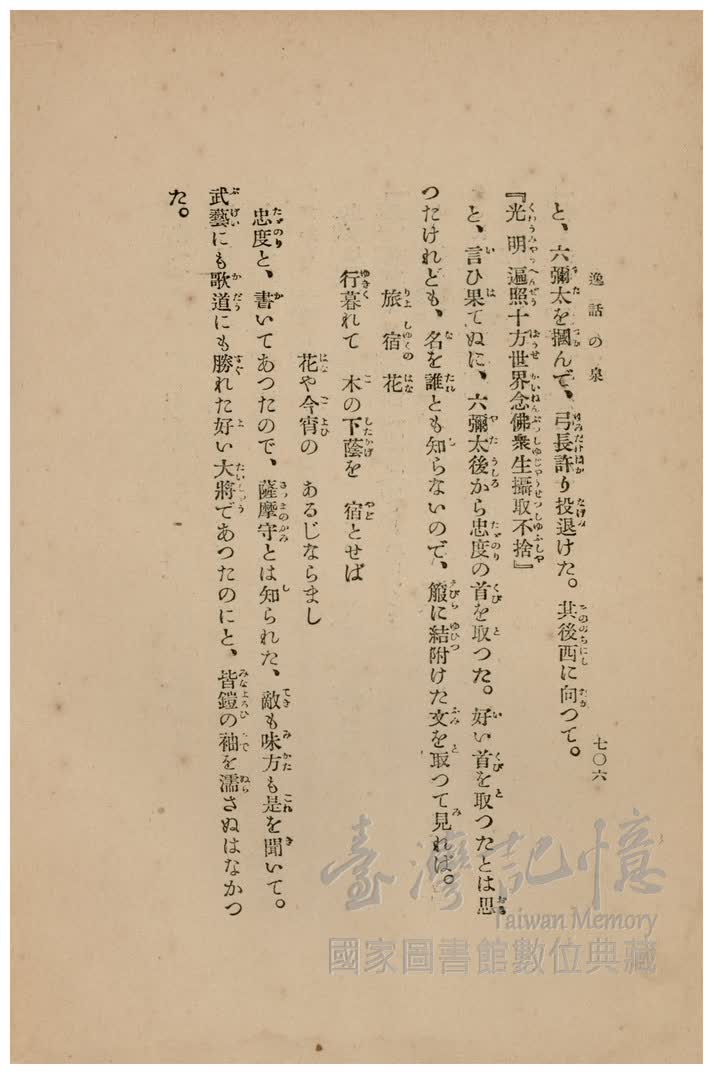 逸話の泉
七〇六
と、六彌太を摑んで、弓長許り投退けた。其後西に向つて。
『光明遍照十方世界念佛衆生攝取不捨』
と、言ひ果てぬに、六彌太後から忠度の首を取つた。好い首を取つたとは思
つたけれども、名を誰とも知らないので、箙に結附けた文を取つて見れば。
旅宿花
行暮れて 木の下蔭を 宿とせば
花や今宵の あるじならまし
忠度と、書いてあつたので、薩摩守とは知られた、敵も味方も是を聞いて。
武藝にも歌道にも勝れた好い大將であつたのにと、皆鎧の袖を濡さぬはなかつ
た。
臺灣記憶
Taiwan Memory
國家圖書館數位典藏